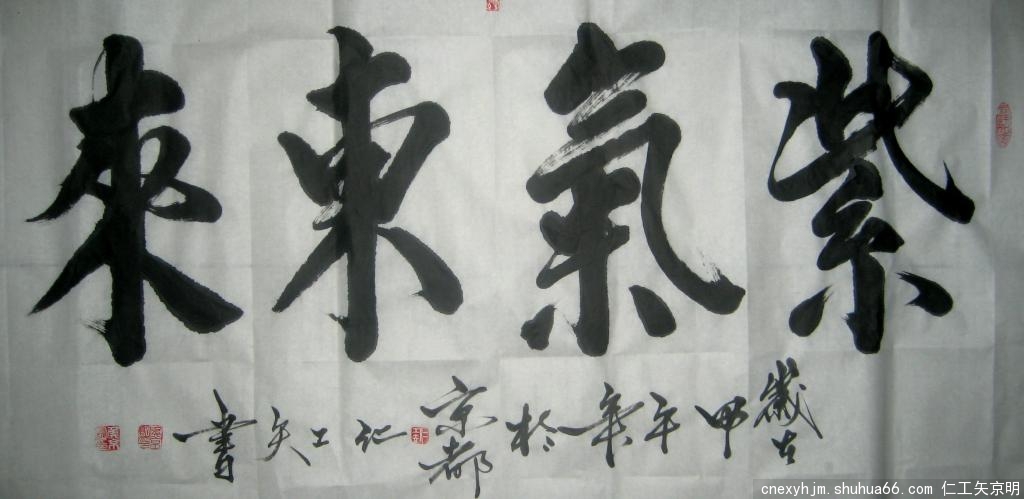 紫氣東來
歲在甲午年於京都仁工矢書
cnexyhjm.shuhua66.com 仁工矢京明